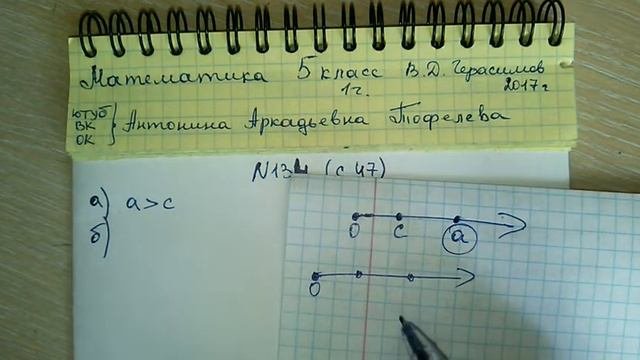 Математика 5 класс В.Д. Герасимов
1ч. 2017г
ЮТУБ
ВК
ОК
Антонина Аркадьевна Тофелева
N134 (с 47)
а) a>c
б)
0 c a
0